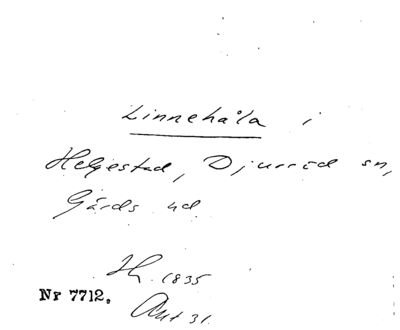 Linnehåla i
Helgestad, Djurröd sn,
Gärds hd
Hk. 1835
Nr 7712.
Ant 31.